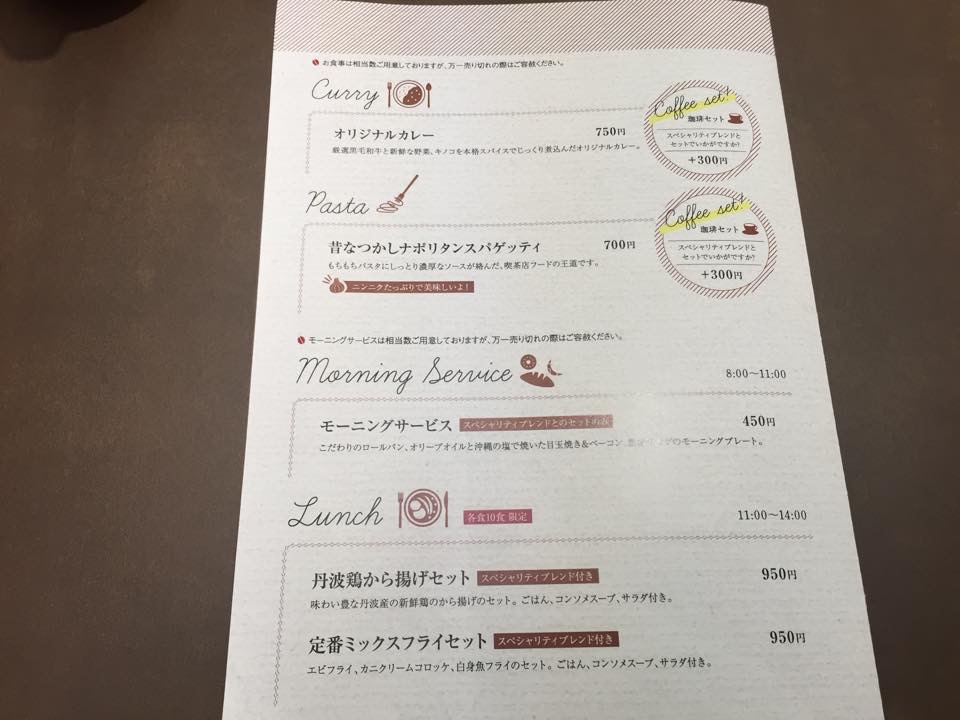 お食事は相当数ご用意しておりますが、万一売り切れの際はご容赦ください。
Curry
オリジナルカレー 750円
厳選黒毛和牛と新鮮な野菜、キノコを本格スパイスでじっくり煮込んだオリジナルカレー。
Coffee set!
珈琲セット
スペシャリティブレンドと
セットでいかがですか?
+300円
Pasta
昔なつかしナポリタンスパゲッティ 700円
もちもちパスタにしっとり濃厚なソースが絡んだ、喫茶店フードの王道です。
ニンニクたっぷりで美味しいよ!
Coffee set!
珈琲セット
スペシャリティブレンドと
セットでいかがですか?
+300円
モーニングサービスは相当数ご用意しておりますが、万一売り切れの際はご容赦ください。
Morning Service 8:00〜11:00
モーニングサービス スペシャリティブレンドとのセットのみ 450円
こだわりのロールパン、オリーブオイルと沖縄の塩で焼いた目玉焼き&ベーコン、のモーニングプレート。
Lunch 各食10食 限定 11:00〜14:00
丹波鶏から揚げセット スペシャリティブレンド付き 950円
味わい豊な丹波産の新鮮鶏のから揚げのセット。ごはん、コンソメスープ、サラダ付き。
定番ミックスフライセット スペシャリティブレンド付き 950円
エビフライ、カニクリームコロッケ、白身魚フライのセット。ごはん、コンソメスープ、サラダ付き。